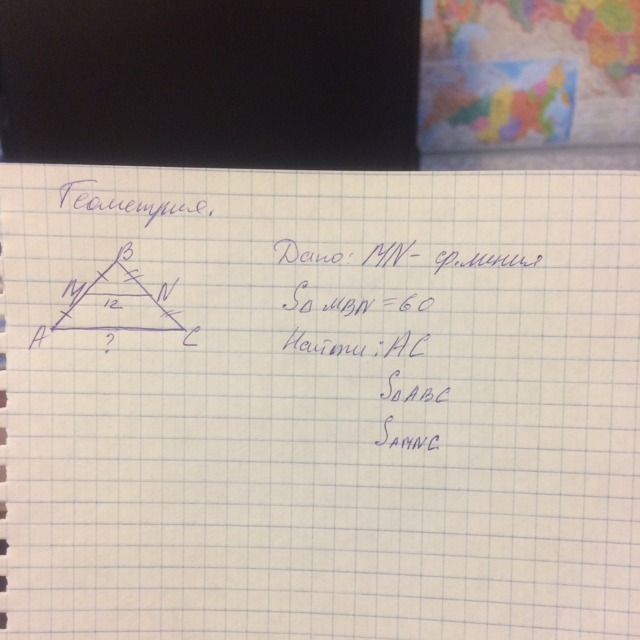 Геометрия.
B
M N
12
A C
?
Дано: MN - ср. линия
S△MBN = 60
Найти: AC
S△ABC
SAMNC